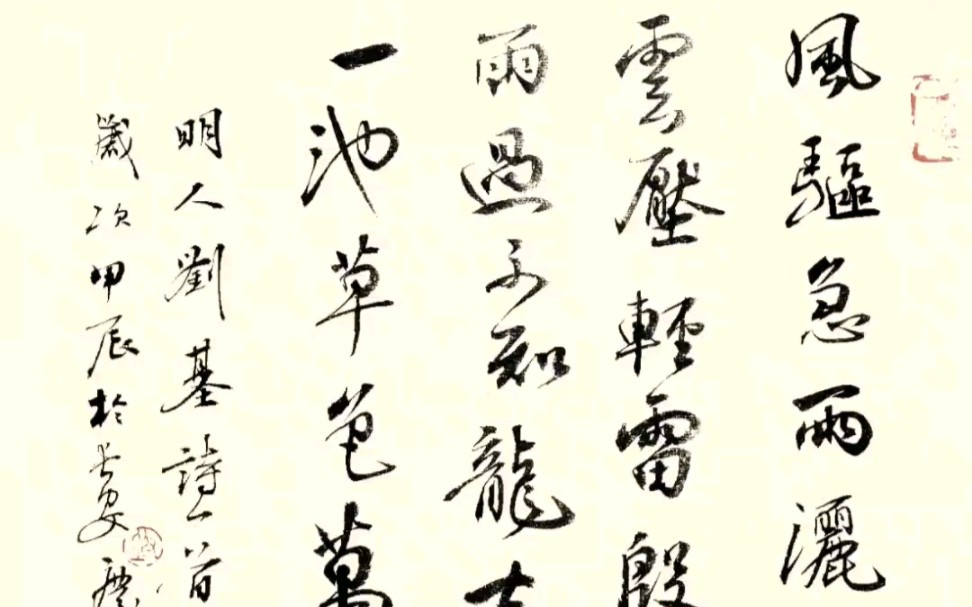 風驅急雨灑
雲壓輕雷殷
雨過不知龍去
一池草色萬
明人劉基詩一首
歲次甲辰於長安